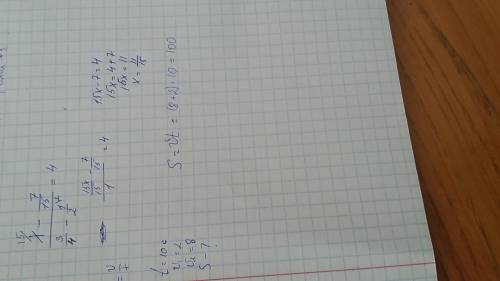 x - 7/15
3/4 - 1/2 = 4
15x/15 - 7/15
1 = 4
15x - 7 = 4
15x = 4 + 7
15x = 11
x = 11/15
t = 10 c
v₁ = 2
v₂ = 8
S - ?
S = vt = (8+2) · 10 = 100